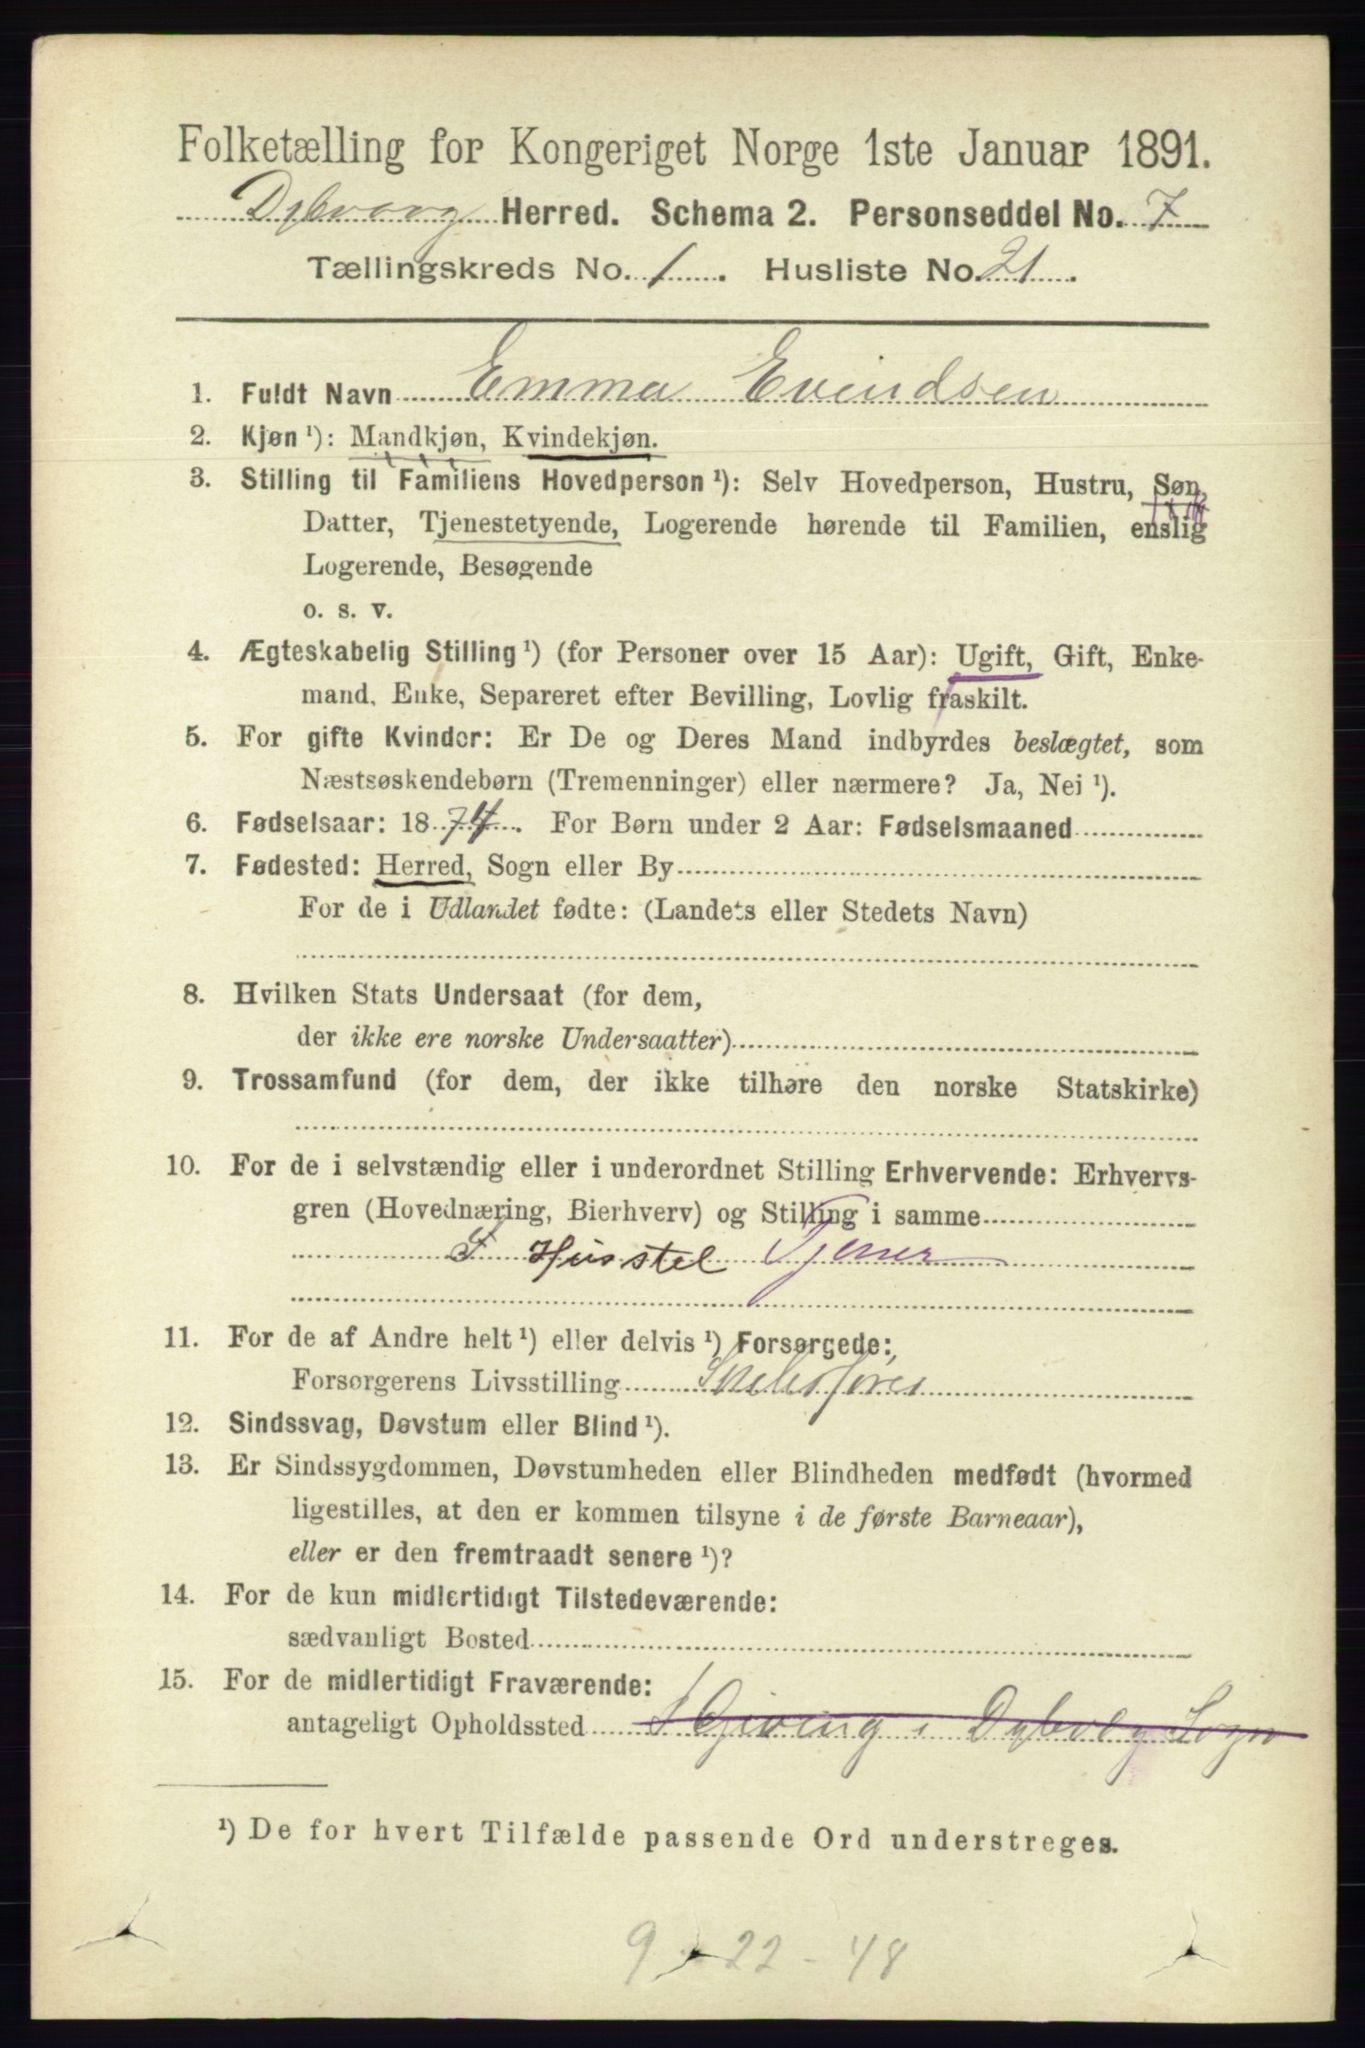 Folketælling for Kongeriget Norge 1ste Januar 1891.
Dybvaag Herred. Schema 2. Personseddel No. 7
Tællingskreds No. 1. Husliste No. 21.
1. Fuldt Navn Emma Evindsen
2. Kjøn ¹): Mandkjøn, Kvindekjøn.
3. Stilling til Familiens Hovedperson ¹): Selv Hovedperson, Hustru, Søn,
Datter, Tjenestetyende, Logerende hørende til Familien, enslig
Logerende, Besøgende
o. s. v.
4. Ægteskabelig Stilling ¹) (for Personer over 15 Aar): Ugift, Gift, Enke-
mand, Enke, Separeret efter Bevilling, Lovlig fraskilt.
5. For gifte Kvinder: Er De og Deres Mand indbyrdes beslægtet, som
Næstsøskendebørn (Tremenninger) eller nærmere? Ja, Nei ¹).
6. Fødselsaar: 1874. For Børn under 2 Aar: Fødselsmaaned
7. Fødested: Herred, Sogn eller By
For de i Udlandet fødte: (Landets eller Stedets Navn)
8. Hvilken Stats Undersaat (for dem,
der ikke ere norske Undersaatter)
9. Trossamfund (for dem, der ikke tilhøre den norske Statskirke)
10. For de i selvstændig eller i underordnet Stilling Erhvervende: Erhvervs-
gren (Hovednæring, Bierhverv) og Stilling i samme
Husstel Tjener
11. For de af Andre helt ¹) eller delvis ¹) Forsørgede:
Forsørgerens Livsstilling
12. Sindssvag, Døvstum eller Blind ¹).
13. Er Sindssygdommen, Døvstumheden eller Blindheden medfødt (hvormed
ligestilles, at den er kommen tilsyne i de første Barneaar),
eller er den fremtraadt senere ¹)?
14. For de kun midlertidigt Tilstedeværende:
sædvanligt Bosted
15. For de midlertidigt Fraværende:
antageligt Opholdssted Gjeving i Dybvåg Sogn
¹) De for hvert Tilfælde passende Ord understreges.
9 - 22 - 48